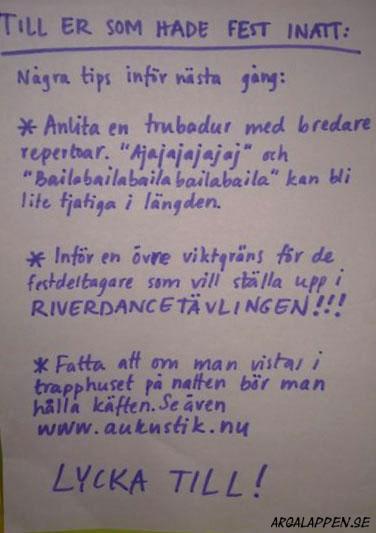 TILL ER SOM HADE FEST INATT:
Några tips inför nästa gång:
* Anlita en trubadur med bredare
repertoar. "Ajajajajajaj" och
"Bailabailabailabailabaila" kan bli
lite tjatiga i längden.
* Inför en övre viktgräns för de
festdeltagare som vill ställa upp i
RIVERDANCETÄVLINGEN!!!
* Fatta att om man vistas i
trapphuset på natten bör man
hålla käften. Se även
www.aukustik.nu
LYCKA TILL!
ARGALAPPEN.SE